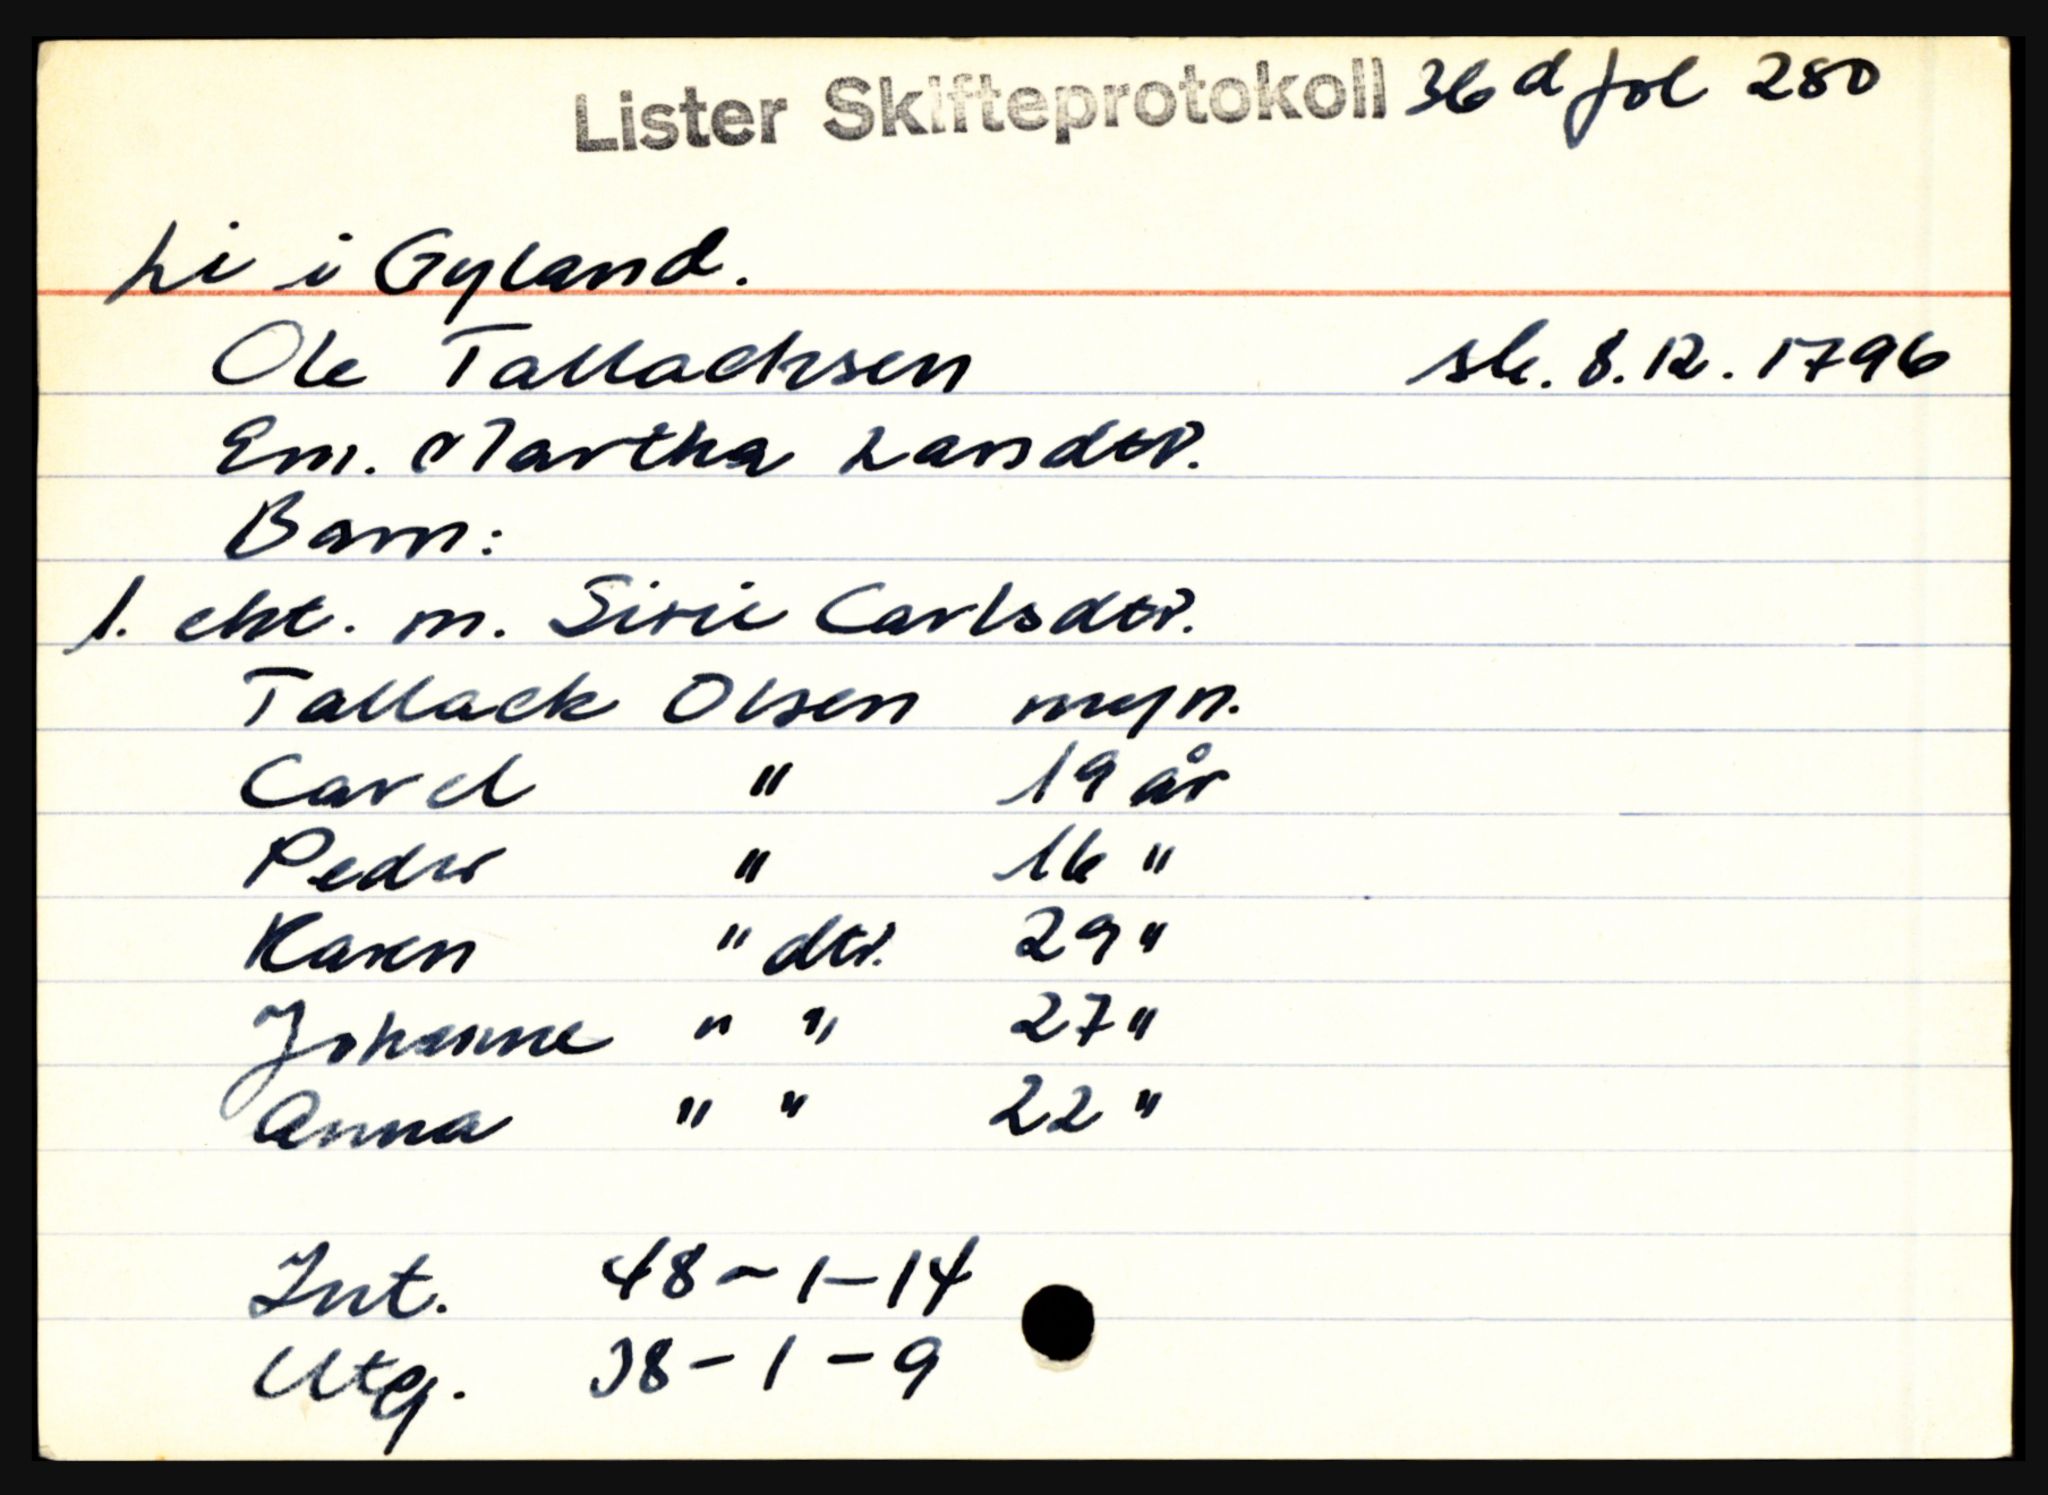 Lister Skifteprotokoll 36 d fol 280
Li i Gyland.
Ole Tallachsen sk. 8.12.1796
Em. Martha Larsdtr.
Barn:
1. ekt. m. Sirie Carlsdtr.
Tallack Olsen myn.
Carel " 19 år
Peder " 16 "
Karen " dtr. 29 "
Johanne " " 27 "
Anna " " 22 "
Int. 48-1-14
Utg. 38-1-9